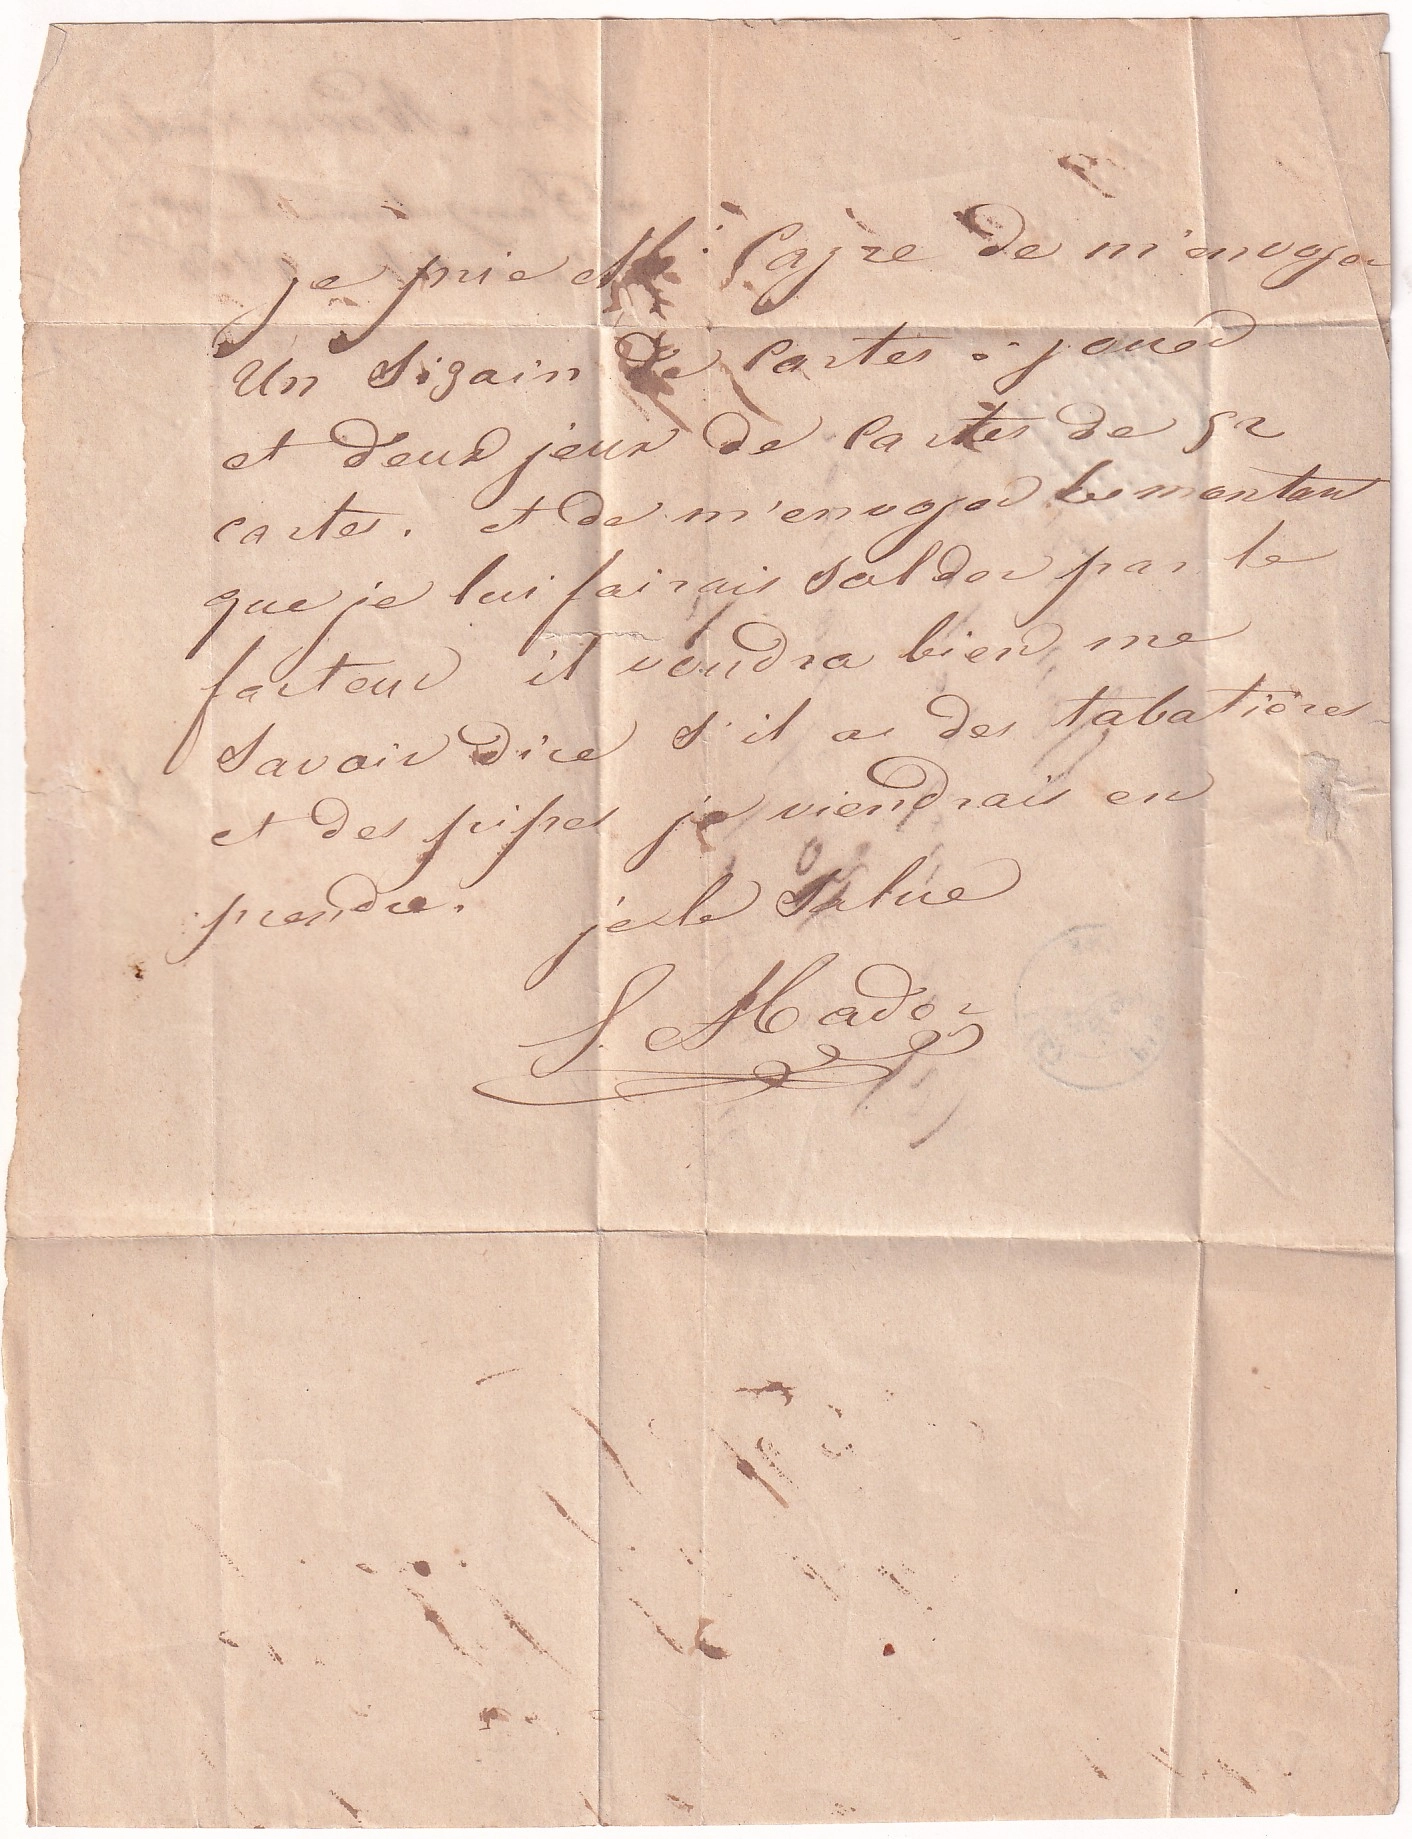 je prie Mr. Cayre de m'envoyer
Un Sizain de Cartes à jouer
et deux jeux de Cartes de 52
cartes. et de m'envoyer le montant
que je lui fairais Solder par le
facteur il voudra bien me
Savoir dire S'il as des tabatières
et des pipes je viendrais en
prendre. je le Salue
S. Mador